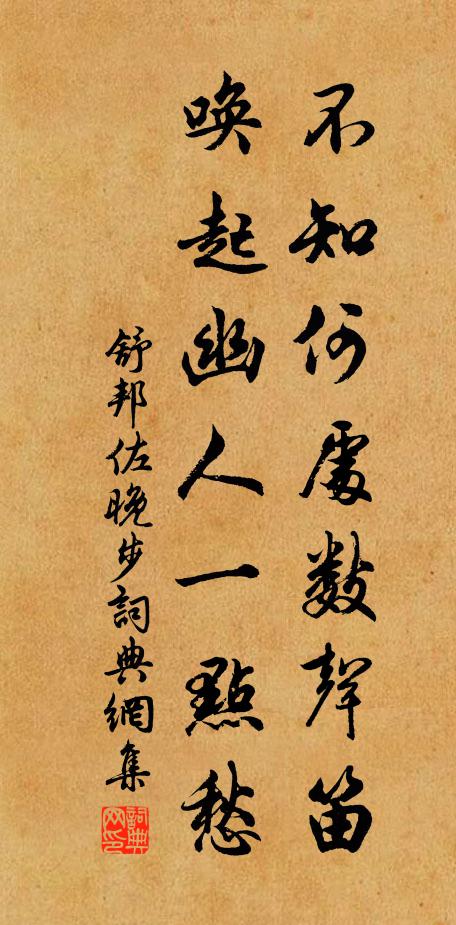 不知何處數聲笛
喚起幽人一點愁
舒邦佐晚步詞典網集
詞典网印